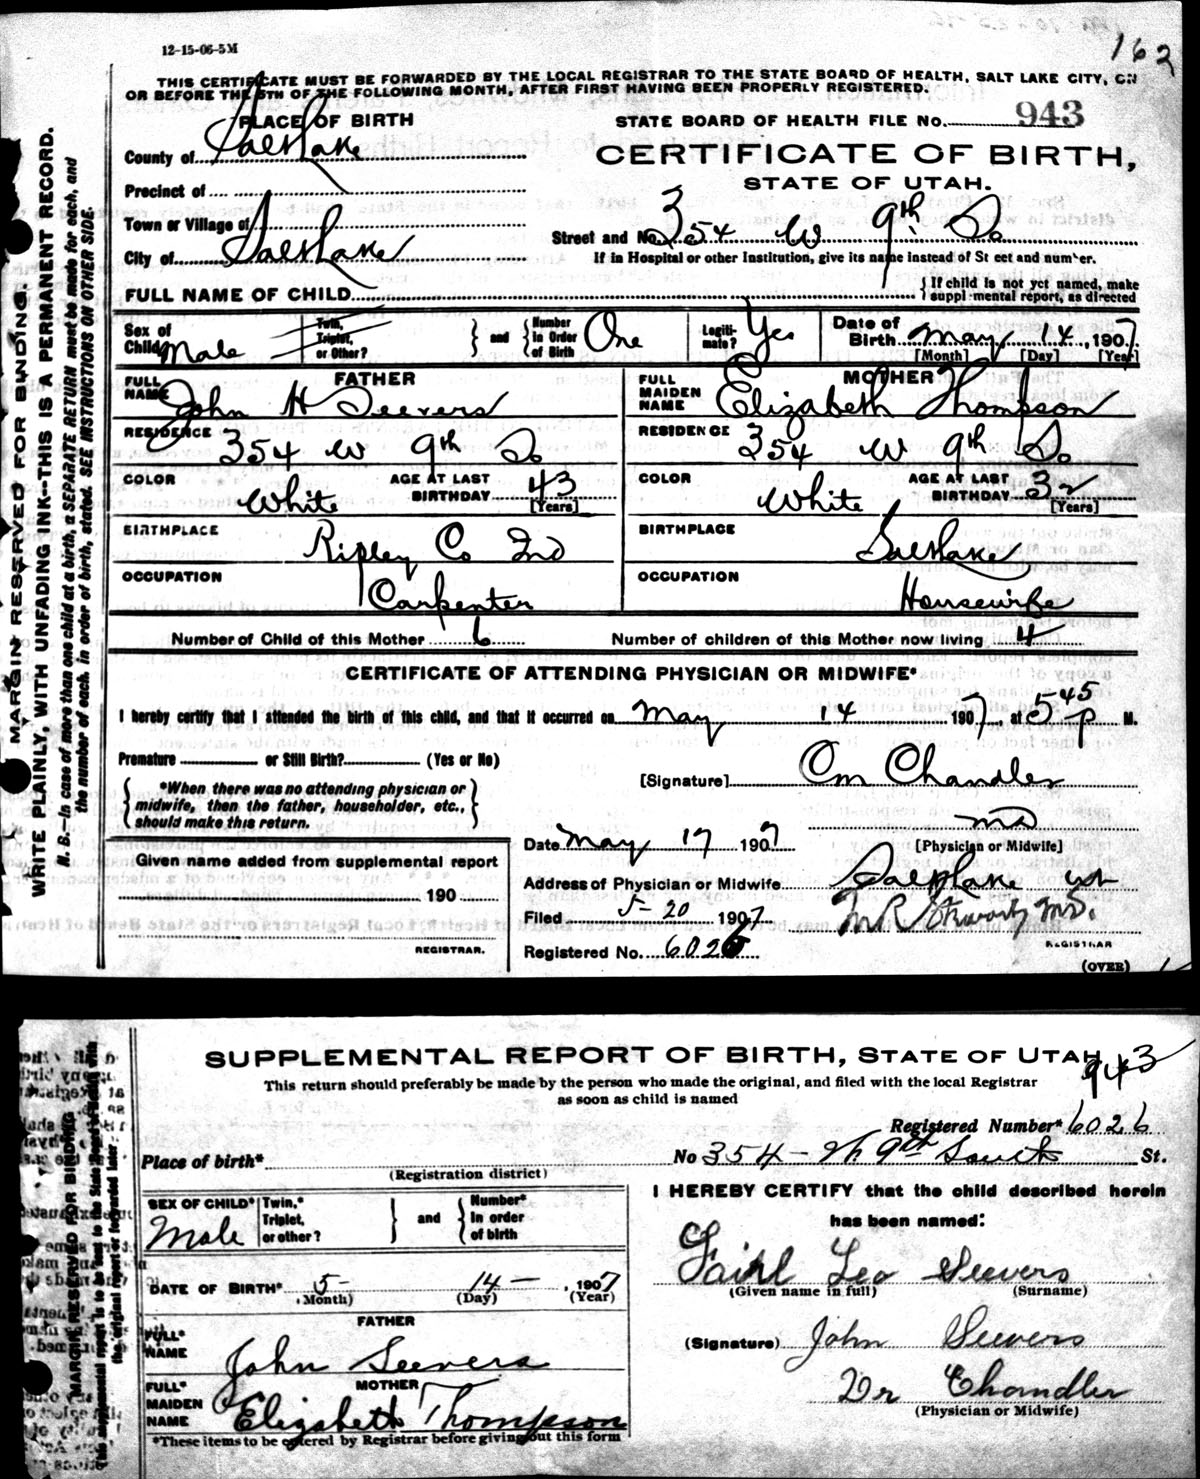 12-15-06-5M
162
THIS CERTIFICATE MUST BE FORWARDED BY THE LOCAL REGISTRAR TO THE STATE BOARD OF HEALTH, SALT LAKE CITY, ON
OR BEFORE THE 5TH OF THE FOLLOWING MONTH, AFTER FIRST HAVING BEEN PROPERLY REGISTERED.
PLACE OF BIRTH
STATE BOARD OF HEALTH FILE No. 943
County of Salt Lake
CERTIFICATE OF BIRTH,
STATE OF UTAH.
Precinct of
Town or Village of
Street and No. 354 W 9th So
City of Salt Lake
If in Hospital or other Institution, give its name instead of St eet and number.
FULL NAME OF CHILD
{If child is not yet named, make
suppl-mental report, as directed
Sex of
Child Male
Twin,
Triplet,
or Other?
} and {
Number
In Order
of Birth One
Legiti-
mate? Yes
Date of
Birth May 14, 1907
[Month] [Day] [Year]
FATHER
FULL
NAME John H Seevers
RESIDENCE 354 W 9th So
COLOR White
AGE AT LAST
BIRTHDAY 43
[Years]
BIRTHPLACE Ripley Co Ind
OCCUPATION Carpenter
MOTHER
FULL
MAIDEN
NAME Elizabeth Thompson
RESIDENCE 354 W 9th So
COLOR White
AGE AT LAST
BIRTHDAY 32
[Years]
BIRTHPLACE Salt Lake
OCCUPATION Housewife
Number of Child of this Mother 6
Number of children of this Mother now living 4
CERTIFICATE OF ATTENDING PHYSICIAN OR MIDWIFE*
I hereby certify that I attended the birth of this child, and that it occurred on May 14 1907, at 5 45 P M.
Premature or Still Birth? (Yes or No)
{ *When there was no attending physician or
midwife, then the father, householder, etc.,
should make this return. }
[Signature] Om Chandler
MD
[Physician or Midwife]
Date May 17 1907
Given name added from supplemental report
190
REGISTRAR.
Address of Physician or Midwife Salt Lake Ut
Filed 5-20 1907
M.D.
REGISTRAR
Registered No. 6026
(OVER)
MARGIN RESERVED FOR BINDING.
WRITE PLAINLY, WITH UNFADING INK--THIS IS A PERMANENT RECORD.
N. B.--In case of more than one child at a birth, a SEPARATE RETURN must be made for each, and
the number of each, in order of birth, stated. SEE INSTRUCTIONS ON OTHER SIDE.
SUPPLEMENTAL REPORT OF BIRTH, STATE OF UTAH
943
This return should preferably be made by the person who made the original, and filed with the local Registrar
as soon as child is named
Registered Number* 6026
Place of birth*
(Registration district)
No 354 - W. 9th South St.
SEX OF CHILD*
Male
Twin,*
Triplet,
or other?
} and {
Number*
In order
of birth
DATE OF BIRTH* 5- 14-, 1907
(Month) (Day) (Year)
FATHER
FULL*
NAME John Seevers
MOTHER
FULL*
MAIDEN
NAME Elizabeth Thompson
*These items to be entered by Registrar before giving out this form
I HEREBY CERTIFY that the child described herein
has been named:
Leo Seevers
(Given name in full) (Surname)
(Signature) John Seevers
Dr Chandler
(Physician or Midwife)
MARGIN RESERVED FOR BINDING